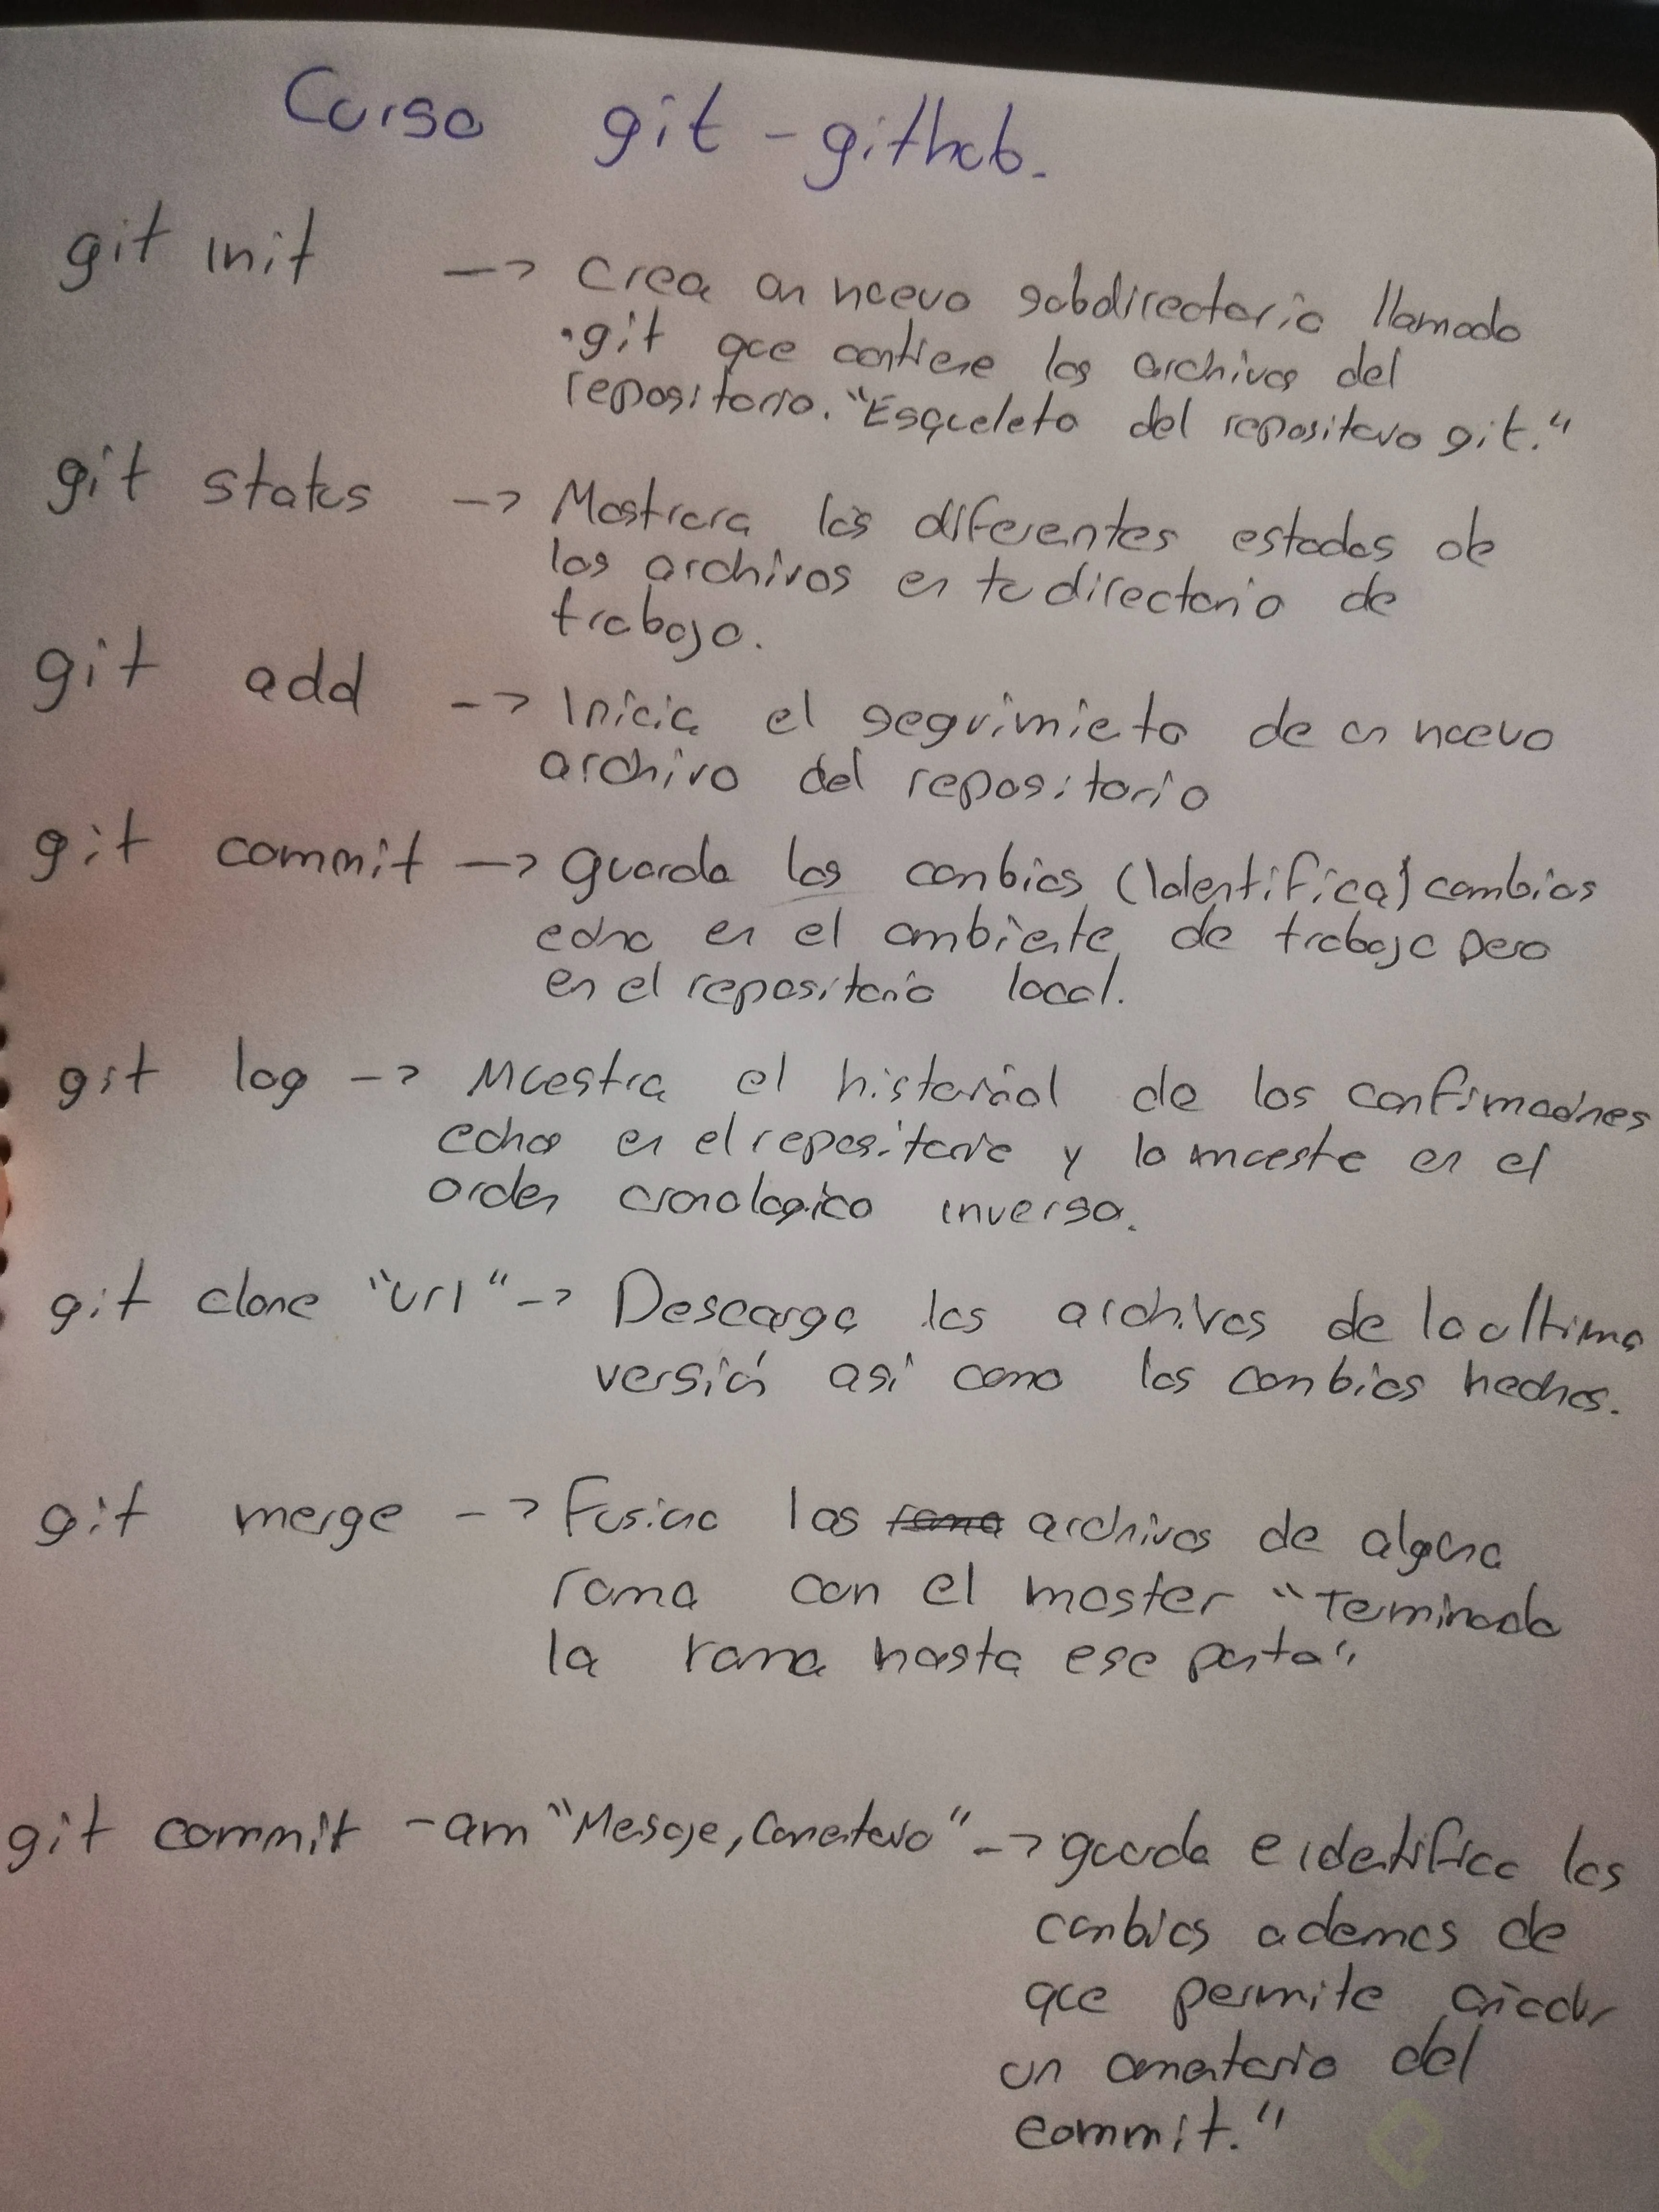 Curso git - github.
git init -> Crea un nuevo subdirectorio llamado
.git que contiene los archivos del
repositorio. "Esqueleto del repositorio git."
git status -> Mostrara los diferentes estados de
los archivos en tu directorio de
trabajo.
git add -> Inicia el seguimieto de un nuevo
archivo del repositorio
git commit -> guarda los canbios (Identifica) cambios
echo en el ambiente de trabajo pero
en el repositorio local.
git log -> Muestra el historial de los confirmaciones
echos en el repositorio y lo mueste en el
orden cronologico inverso.
git clone "url" -> Descarga los archivos de la ultima
versión así como los canbios hechos.
git merge -> Fusiona los rama archivos de alguna
rama con el master "Terminado
la rama hasta ese punto"
git commit -am "Mesaje, Comentario" -> guarda e identifica los
canbios ademas de
que permite añadir
un comentario del
commit."